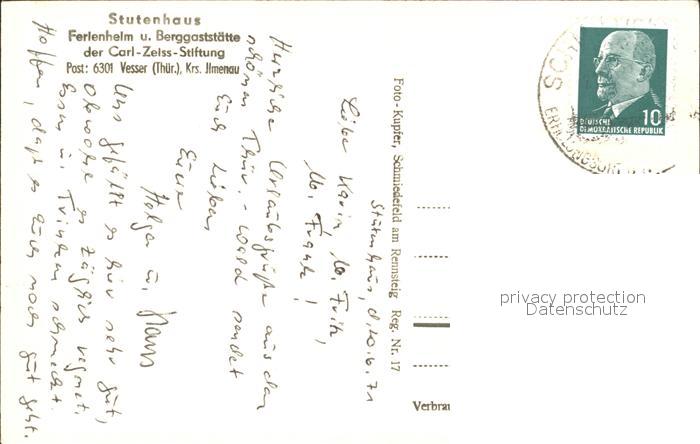 Stutenhaus
Ferienheim u. Berggaststätte
der Carl-Zeiss-Stiftung
Post: 6301 Vesser (Thür.), Krs. Jlmenau
Stutenhaus, d. 10.6.71
Liebe Karin u. Fritz,
u. Frank!
Herzliche Urlaubsgrüße aus dem
schönen Thür.-Wald sendet
Euch Lieben
Eure
Helga u. Hans
Uns gefällt es hier sehr gut,
obwohl es täglich regnet.
Essen u. Trinken schmeckt.
Hoffen, daß es Euch noch gut geht.
Foto-Kupfer, Schmiedefeld am Rennsteig Reg. Nr. 17
DEUTSCHE
DEMOKRATISCHE REPUBLIK
10
privacy protection
Datenschutz
Verbrau